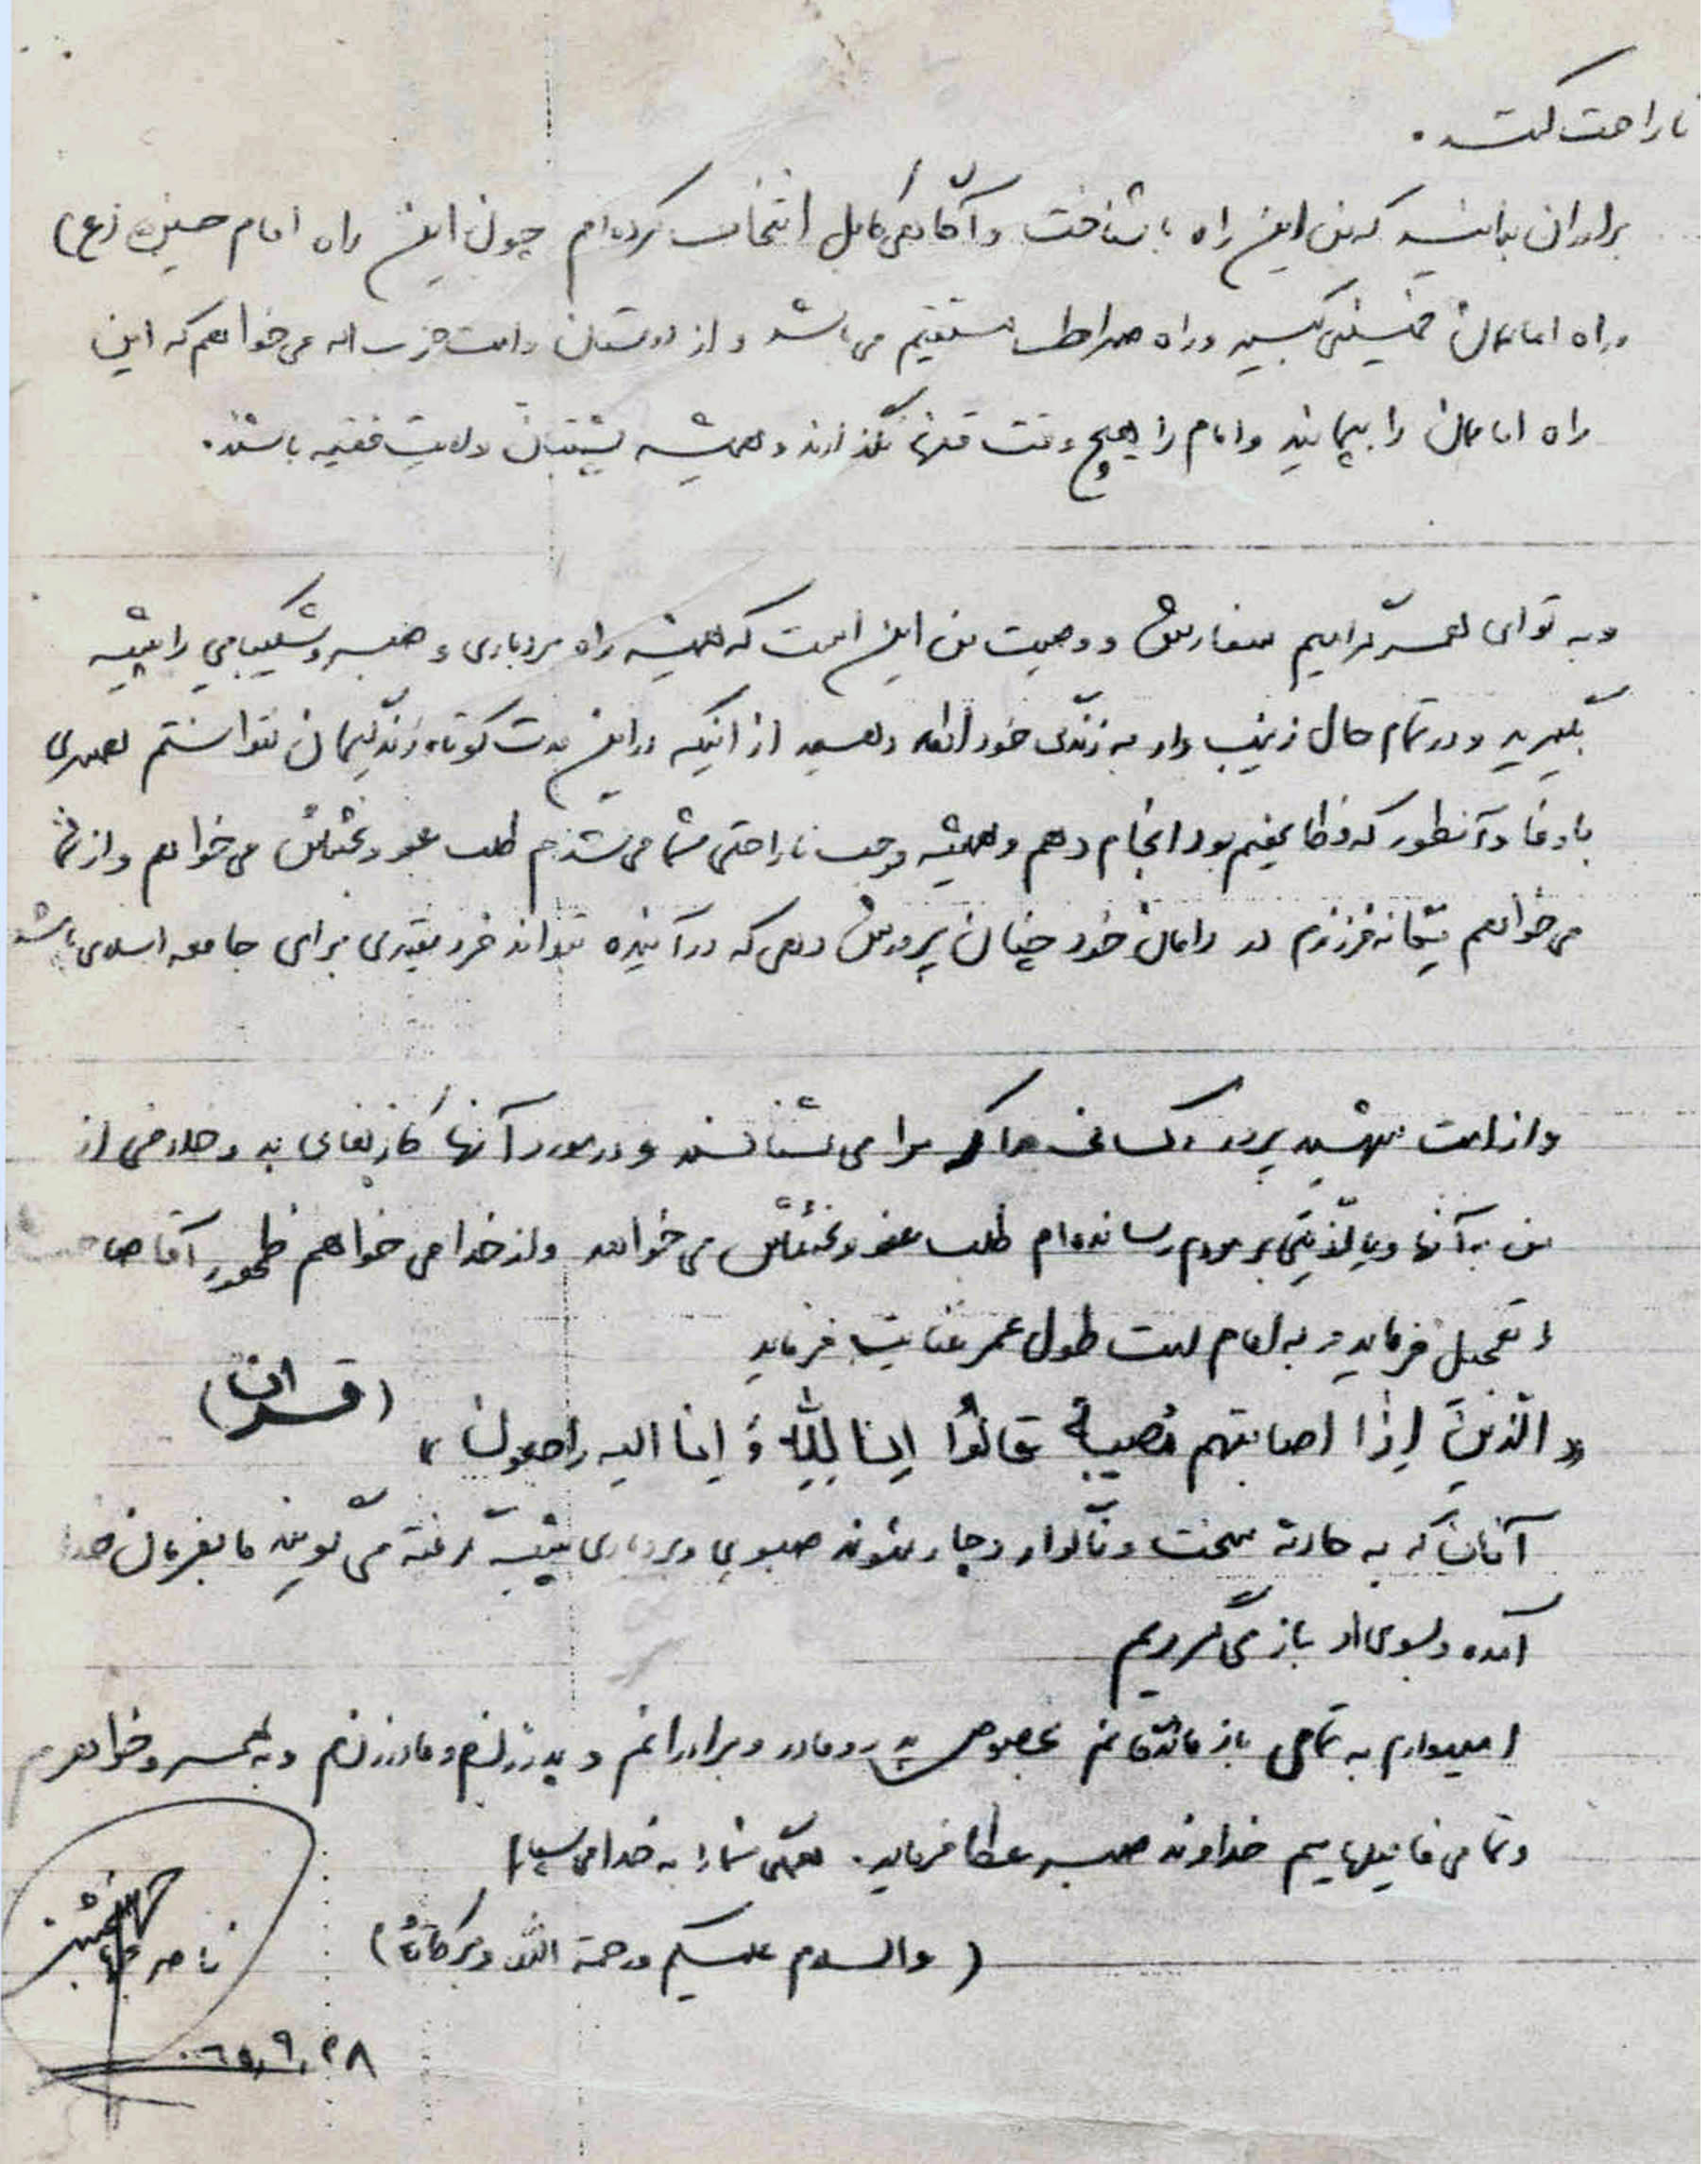 ناراحت کنند.
برادران بدانید که من این راه با شناخت و آگاهی کامل انتخاب کرده‌ام چون این راه امام حسین (ع)
و راه امامان خمینی کبیر و راه صراط مستقیم می‌باشد و از دوستان و امت حزب اله می‌خواهم که این
راه امامان را بپمایند و امام را هیچ وقت تنها نگذارند و همیشه پشتیبان ولایت فقیه باشند.
و به تو ای همسر گرامیم سفارش و وصیت من این است که همیشه راه بردباری و صبر و شکیبایی را پیشه
بگیرید و در تمام حال زینب وار به زندگی خود ادامه دهید از اینکه در این مدت کوتاه زندگیمان نتوانستم همسری
با وفا و آنطور که وظایفم بود انجام دهم و همیشه موجب ناراحتی شما می‌شدم طلب عفو و بخشش می‌خواهم و از شما
می‌خواهم یگانه فرزندم در دامان خود چنان پرورش دهی که در آینده بتواند فرد مفیدی برای جامعه اسلامی باشد
و از امت شهید پرور کسانی که مرا می‌شناسند و در مورد آنها کارهای بد و خلافی از
من به آنها و یا اذیتی بر مردم رسانده‌ام طلب عفو و بخشش می‌خواهم و از خدا می‌خواهم ظهور آقا صاحب
را تعجیل فرماید و به امام امت طول عمر عنایت فرماید
« الّذینَ اِذٰا اصابتهم مُصیبة قالُوا اِنا لِلّٰهِ وَ اِنا الیه راجعون » (قران)
آنان که به حادثه سخت و ناگوار دچار شوند صبوری و بردباری پیشه گرفته می‌گویند ما بفرمان خدا
آمده و بسوی او باز می‌گردیم
امیدوارم به تمامی بازماندگانم بخصوص پدر و مادر و برادرانم و پدرزنم و مادرزنم و به همسر و خواهرم
و تمامی فامیلهایم خداوند صبر عطا فرماید. همگی شما را به خدا می‌سپارم
(والسلام علیکم و رحمة الله و برکاته)
ناصر
۶۵٫۹٫۲۸